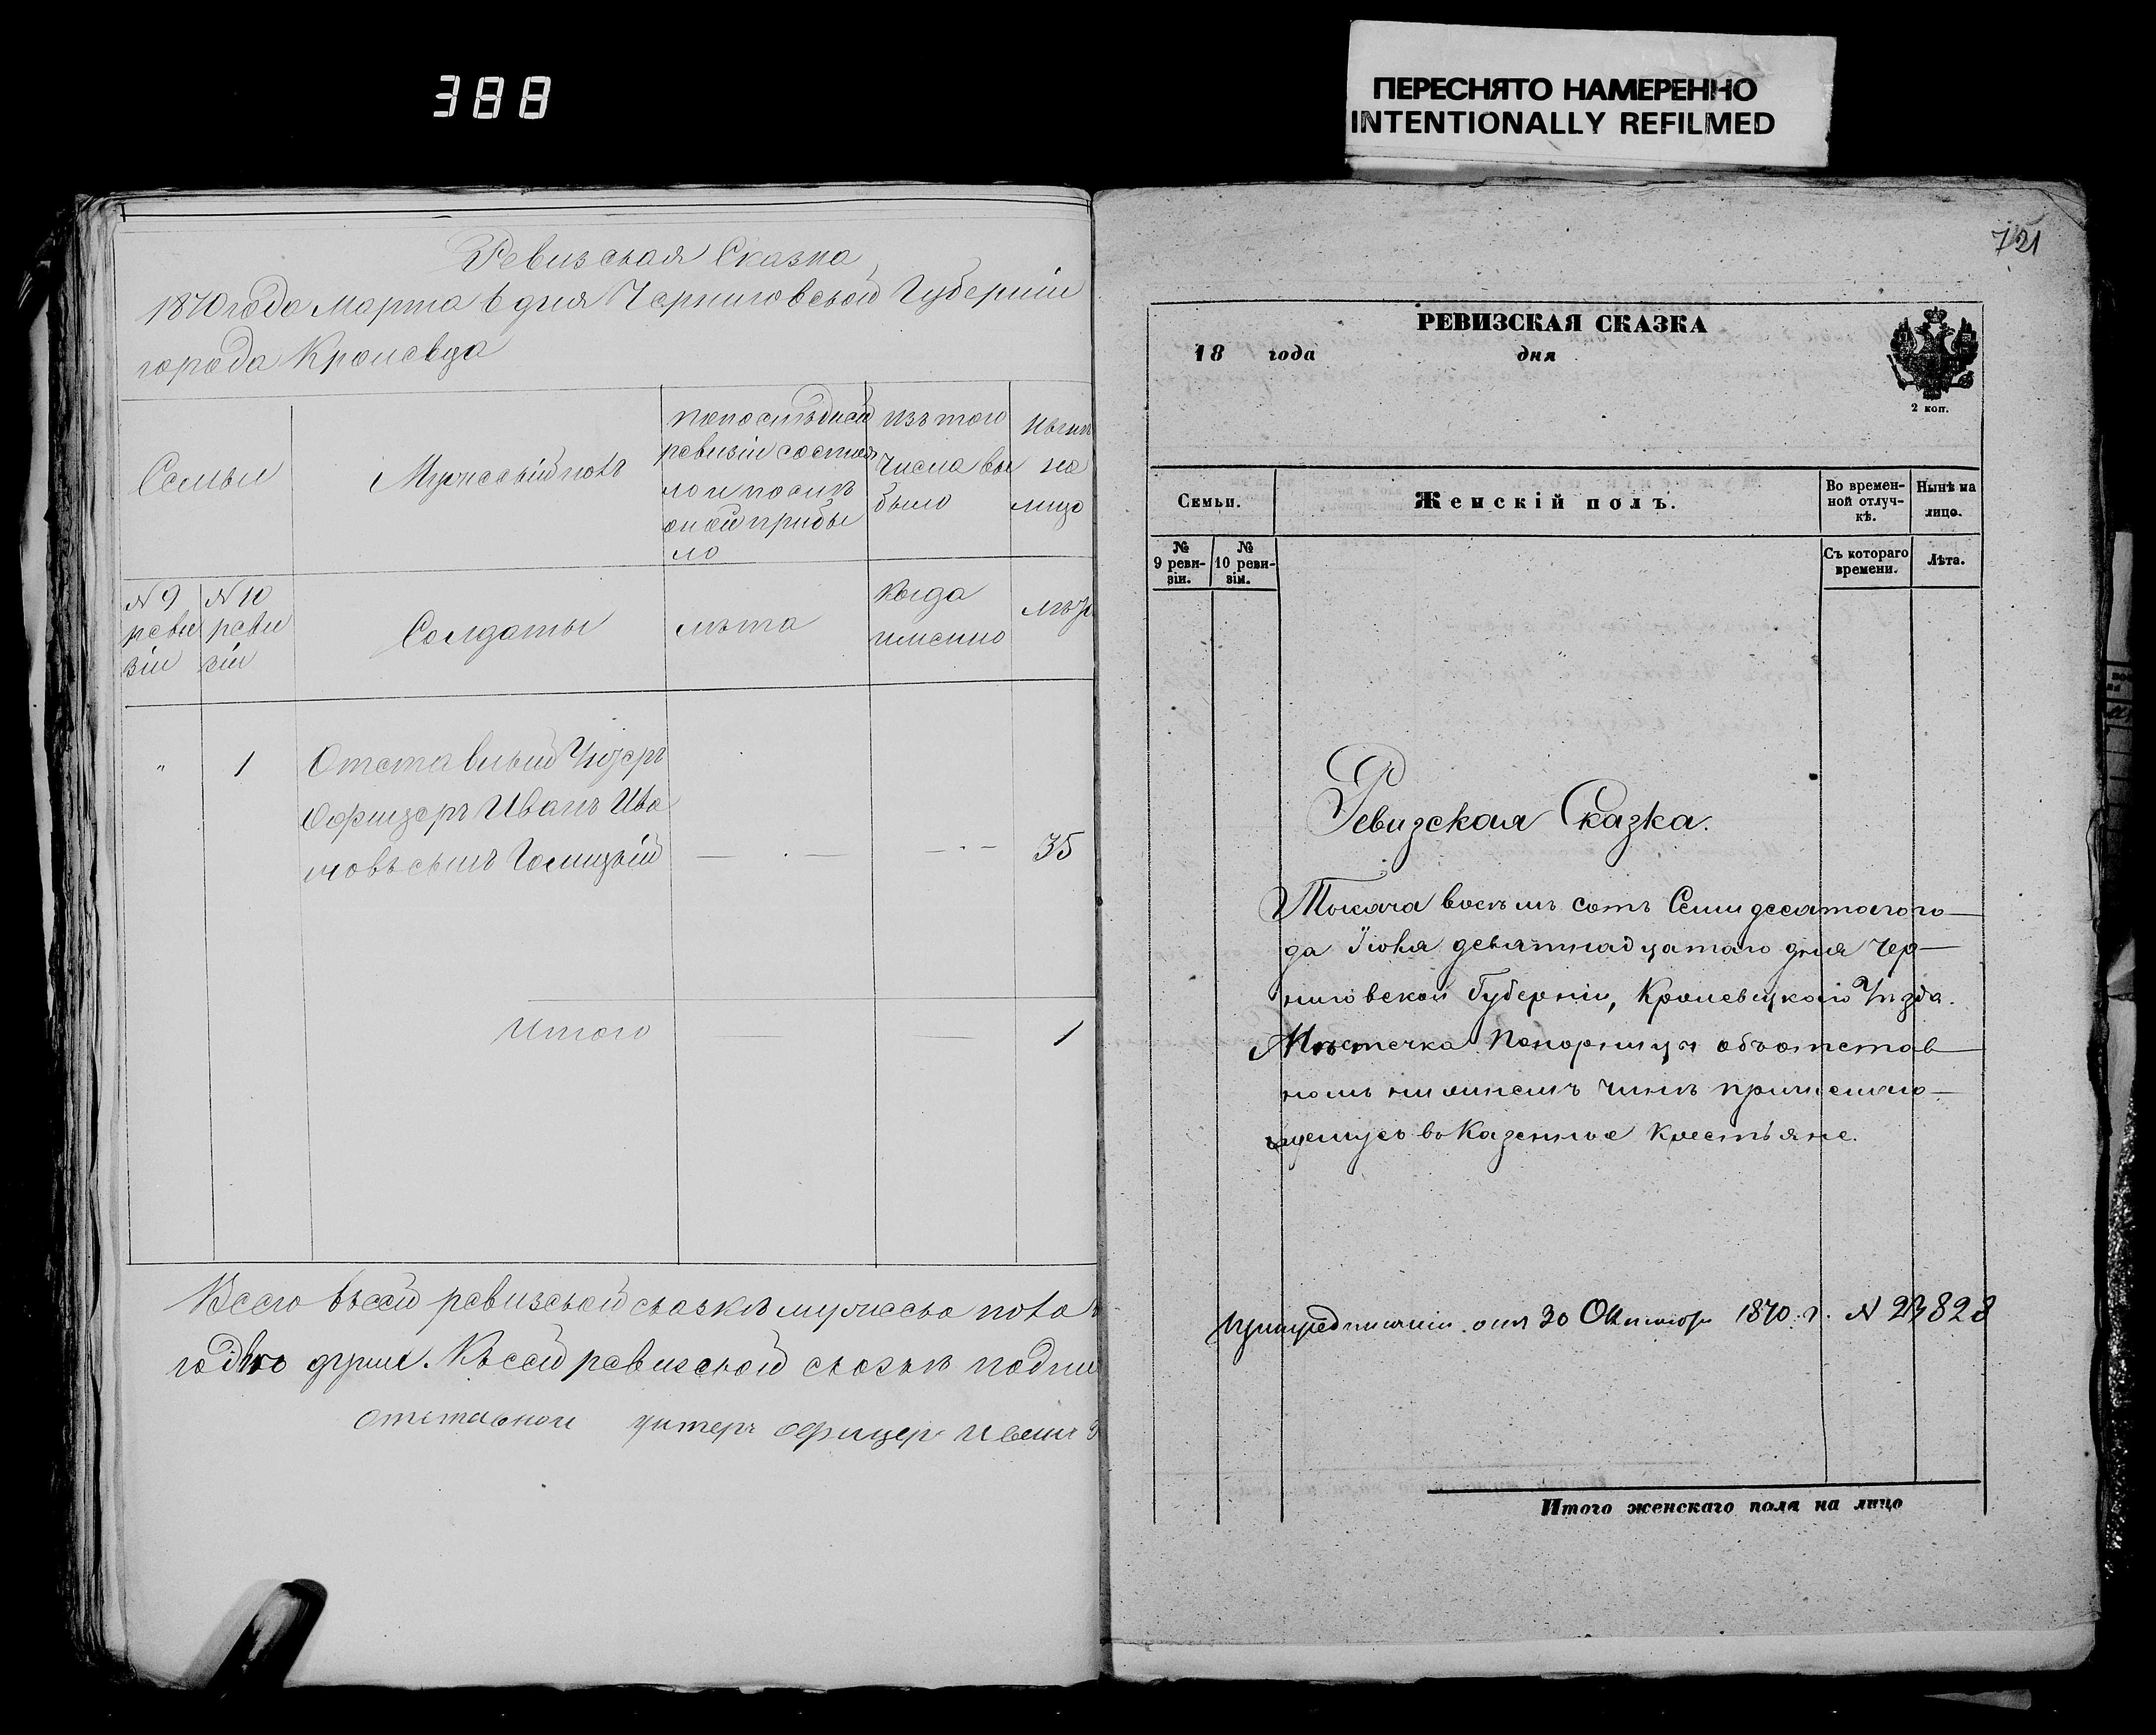 388
ПЕРЕСНЯТО НАМЕРЕННО
INTENTIONALLY REFILMED
Ревизская Сказка
1870 года Марта 6 дня Черниговской Губерніи
города Кролевца
Семьи
Мужескій полъ
По последней
ревизіи состоя
ло и послѣ
оной прибы
ло
Изъ того
числа вы
было
Нынѣ
на
лицо
N 9
реви
зіи
N 10
реви
зіи
Солдаты
лѣта
Когда
именно
лѣта
" 1 Отставный Унтеръ
Офицеръ Иванъ Ива
новъ сынъ Голицкій — — 35
Итого — — 1
Всего въ сей ревизской сказкѣ мужеска пола
душа. Къ сей ревизской сказкѣ
отставной унтеръ офицеръ Иванъ
721
РЕВИЗСКАЯ СКАЗКА
18 года дня
2 коп.
Семьи.
Женскій полъ.
Во времен-
ной отлуч-
кѣ.
Нынѣ на
лицо.
№
9 реви-
зіи.
№
10 реви-
зіи.
Съ котораго
времени.
Лѣта.
Ревизская Сказка.
Тысяча восемь сотъ Семидесятаго го-
да Іюня девятнадцатаго дня Чер-
ниговской Губерніи, Кролевецкаго Уѣзда.
Мѣстечка Понорницы объ отстав-
номъ нижнемъ чинѣ причисляю-
щемуся въ Казенные Крестьяне.
При предписаніи отъ 30 Октября 1870 г. N 23828
Итого женскаго пола на лицо